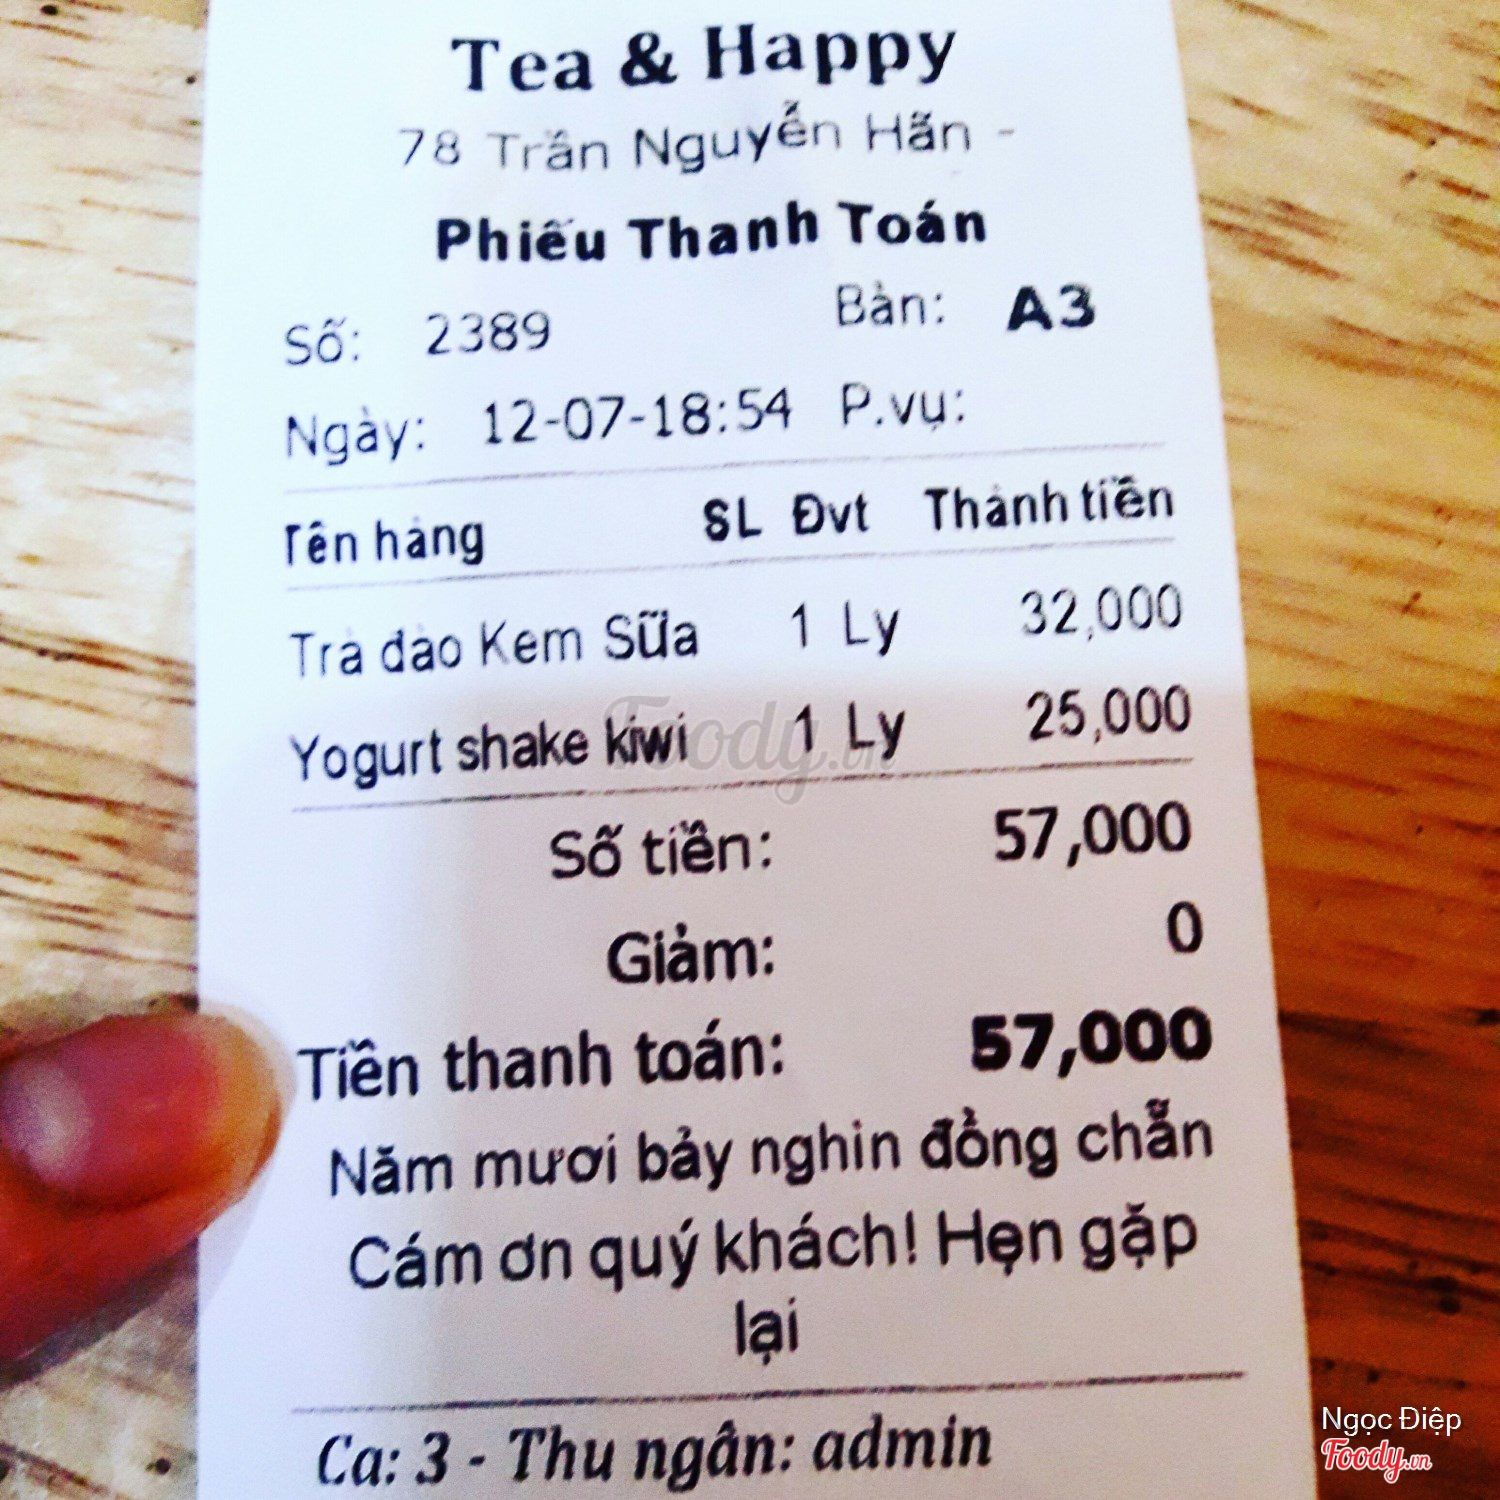 Tea & Happy
78 Trần Nguyễn Hãn -
Phiếu Thanh Toán
Số: 2389 Bàn: A3
Ngày: 12-07-18:54 P.vụ:
Tên hàng SL Đvt Thành tiền
Trà đào Kem Sữa 1 Ly 32,000
Yogurt shake kiwi 1 Ly 25,000
Foody.vn
Số tiền: 57,000
Giảm: 0
Tiền thanh toán: 57,000
Năm mươi bảy nghin đồng chẵn
Cám ơn quý khách! Hẹn gặp
lại
Ca: 3 - Thu ngân: admin
Ngọc Điệp
Foody.vn